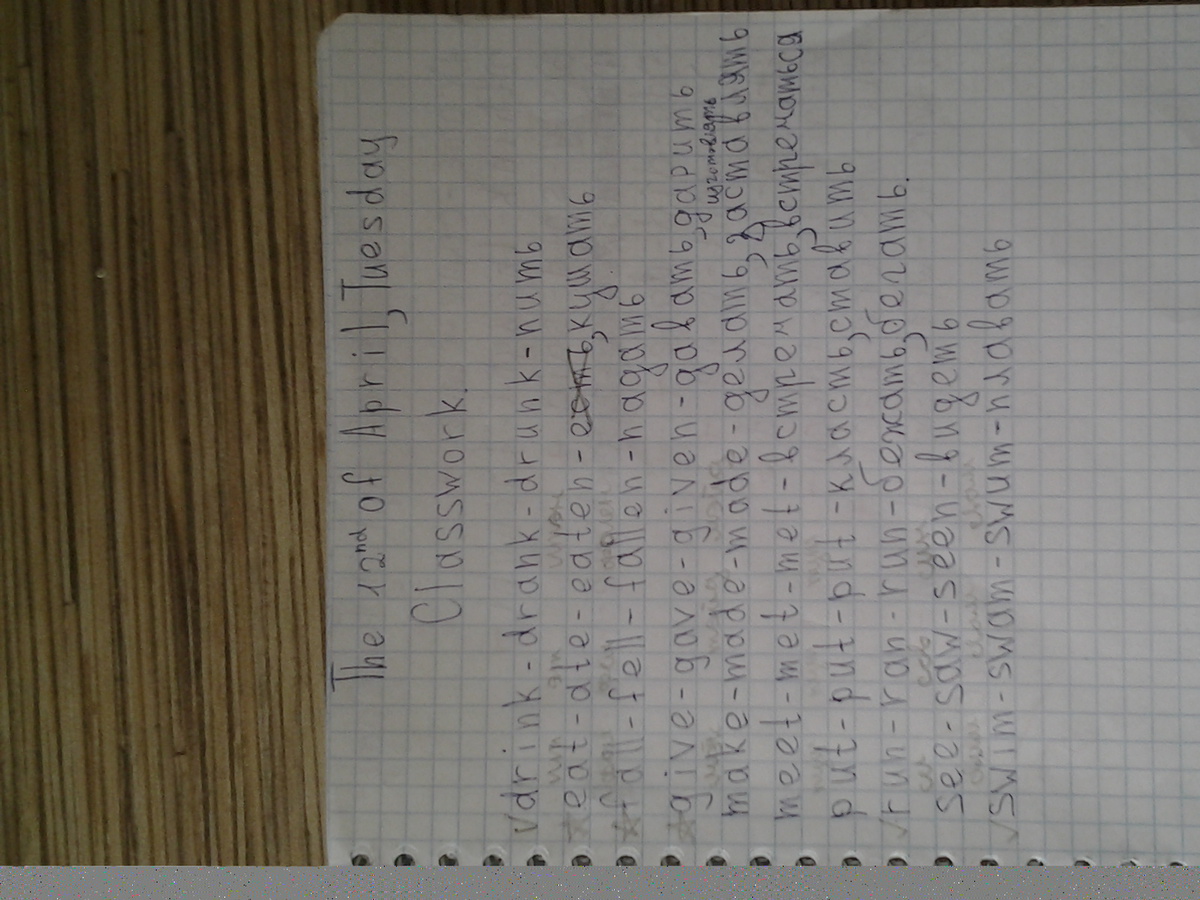 The 12nd of April, Tuesday
Classwork.
√drink-drank-drunk-пить
eat-ate-eaten-есть, кушать
fall-fell-fallen-падать
give-gave-given-давать, дарить
изготовлять
make-made-made-делать, заставлять
meet-met-met-встречать, встречаться
put-put-put-класть, ставить
√run-ran-run-бежать, бегать.
see-saw-seen-видеть
√swim-swam-swum-плавать